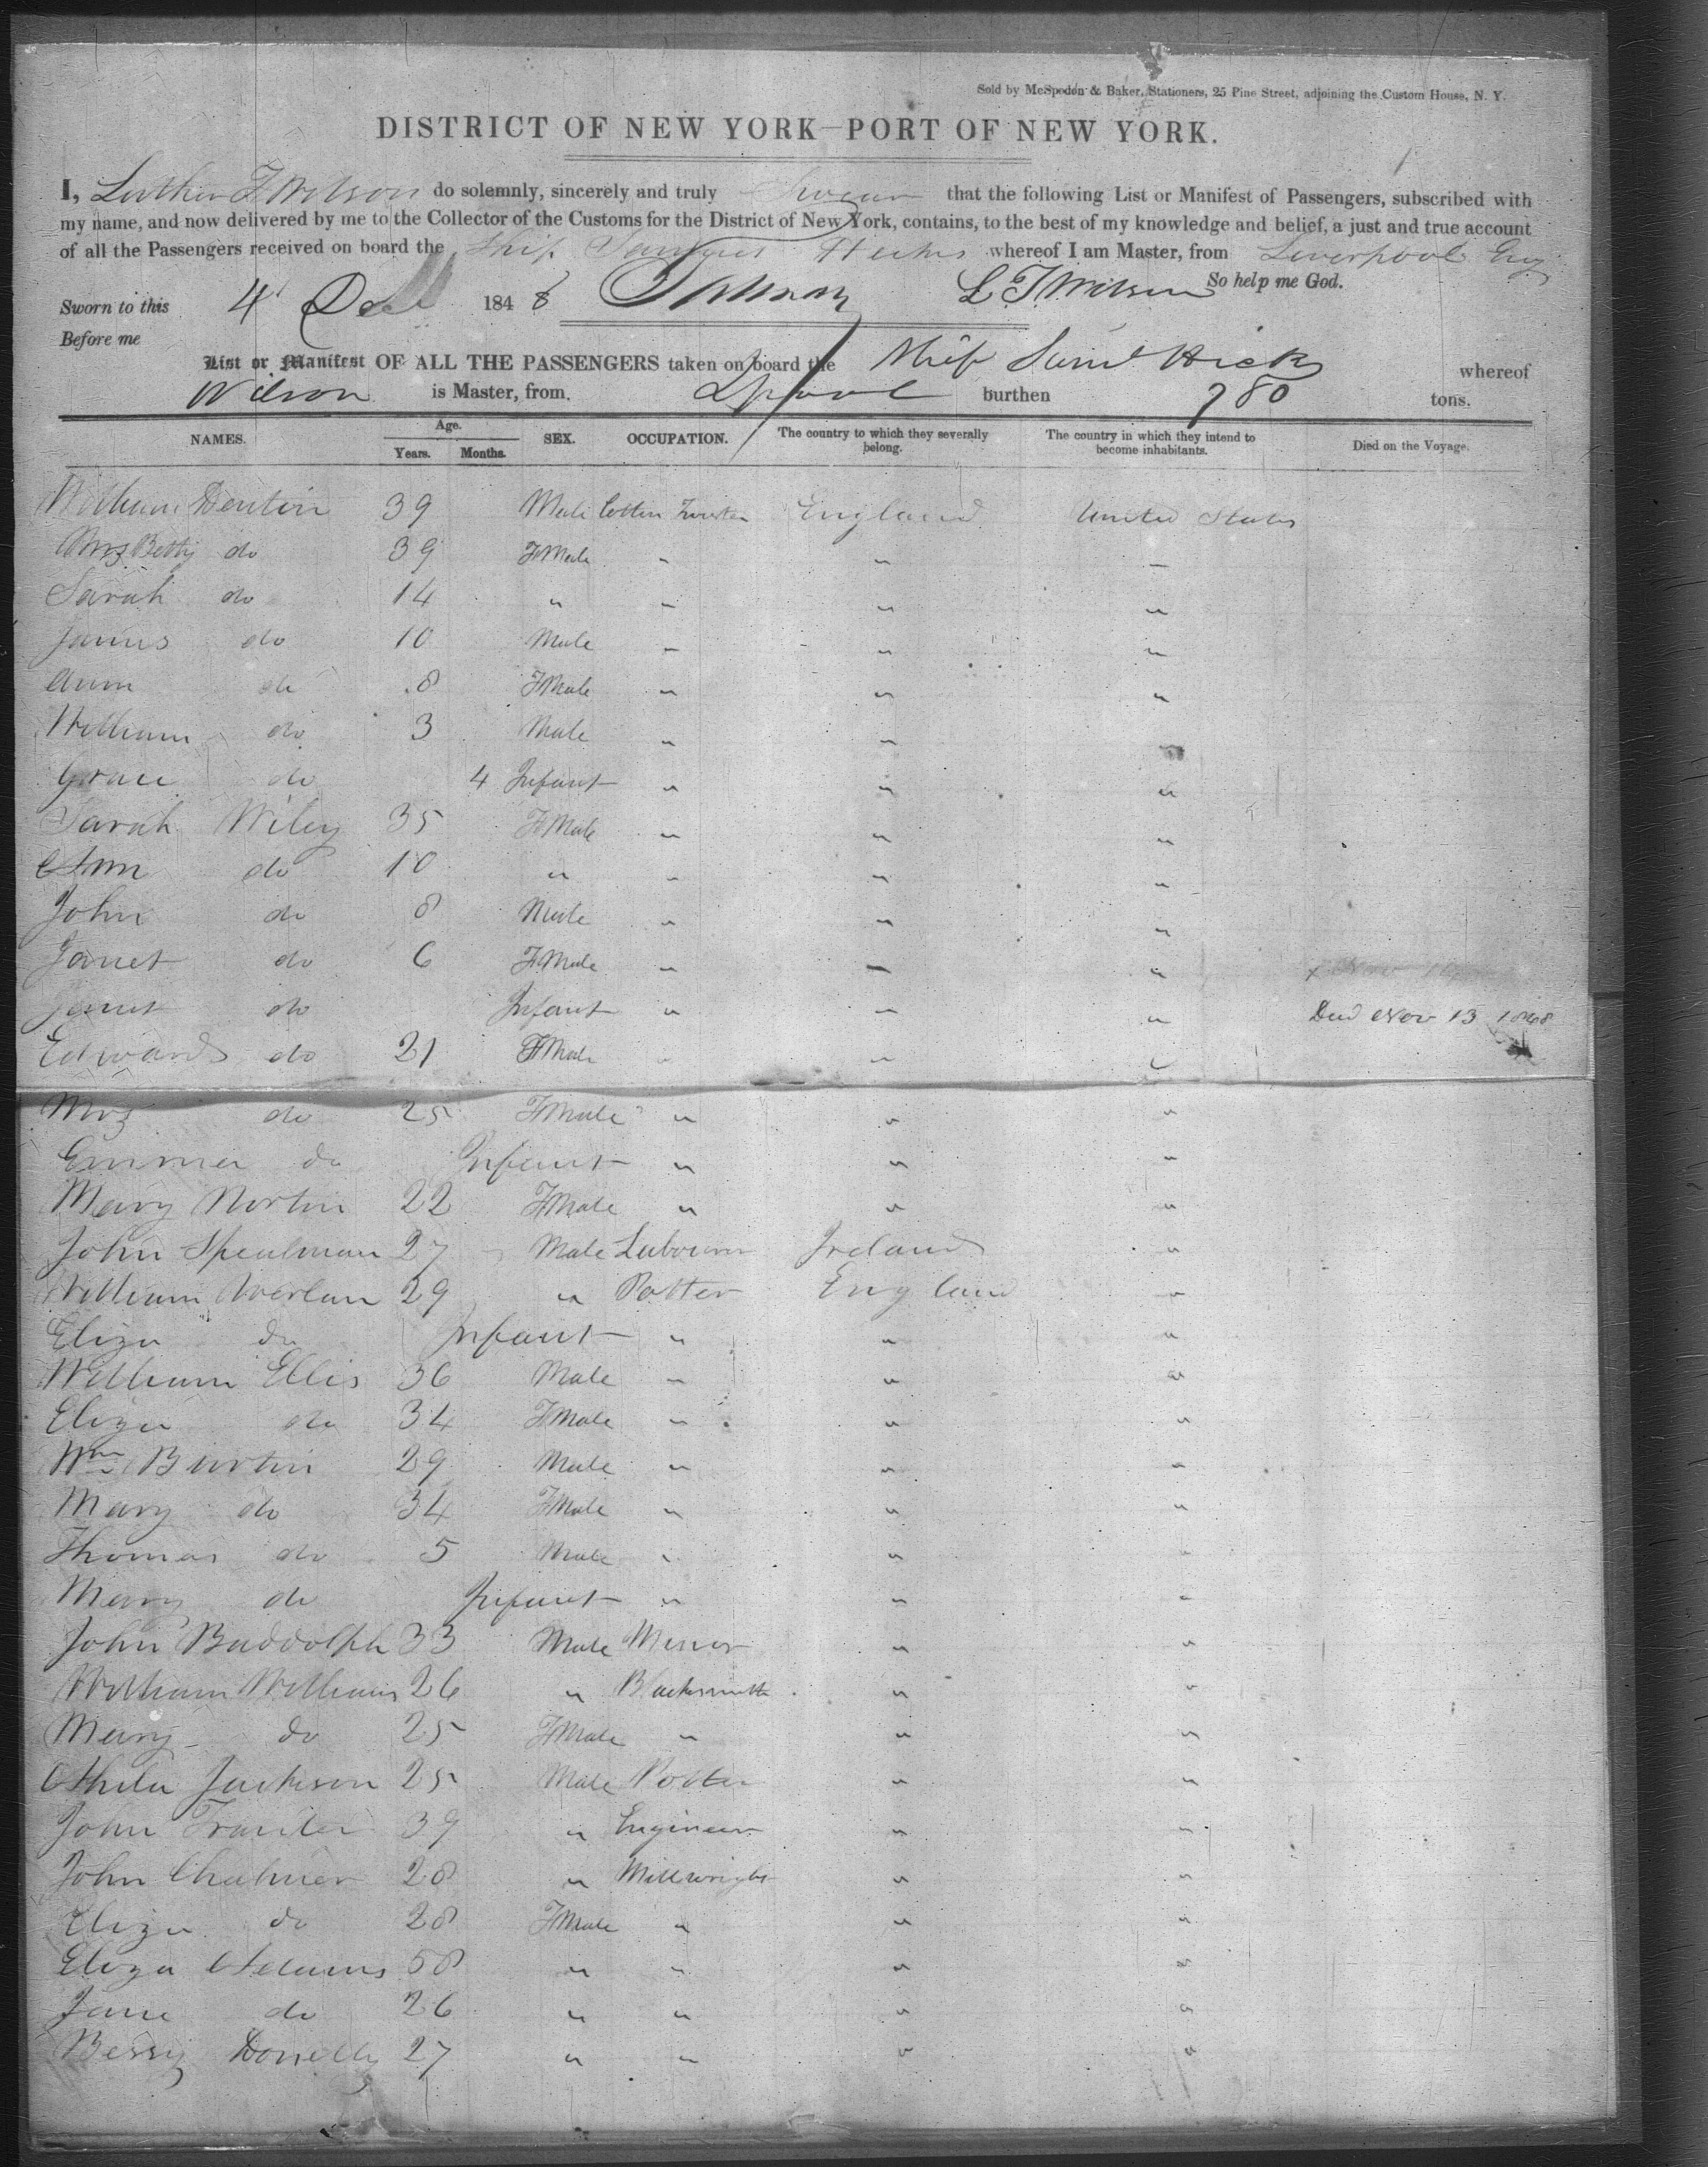 Sold by McSpedon & Baker, Stationers, 25 Pine Street, adjoining the Custom House, N. Y.
DISTRICT OF NEW YORK—PORT OF NEW YORK.
I, Luther F Wilson do solemnly, sincerely and truly Swear that the following List or Manifest of Passengers, subscribed with
my name, and now delivered by me to the Collector of the Customs for the District of New York, contains, to the best of my knowledge and belief, a just and true account
of all the Passengers received on board the Ship Samuel Hicks whereof I am Master, from Liverpool Eng
So help me God.
Sworn to this 4 Dec 1848 L F Wilson
Before me
List or Manifest OF ALL THE PASSENGERS taken on board the Ship Saml Hicks whereof
Wilson is Master, from Lpool burthen 780 tons.
NAMES. Age. Years. Months. SEX. OCCUPATION. The country to which they severally belong. The country in which they intend to become inhabitants. Died on the Voyage.
William Denton 39 Male Cotton Twister England United States
Mrs Betty do 39 FMale " " "
Sarah do 14 " " " "
James do 10 Male " " "
Ann do 8 FMale " " "
William do 3 Male " " "
Grace do 4 Infant " " "
Sarah Wiley 35 FMale " " "
Ann do 10 " " " "
John do 8 Male " " "
Janet do 6 FMale " " "
Janet do Infant " " " Died Nov 13 1848
Edward do 21 Male " " "
Mrs do 25 FMale " " "
Emma do Infant " " "
Mary Norton 22 FMale " " "
John Spealman 27 Male Labourer Ireland "
William 29 " Potter England "
Eliza do Infant " " "
William Ellis 36 Male " " "
Eliza do 34 FMale " " "
Wm Burton 29 Male " " "
Mary do 34 FMale " " "
Thomas do 5 Male " " "
Mary do Infant " " "
John Baddolph 33 Male Miner " "
William Williams 26 " Blacksmith " "
Mary do 25 FMale " " "
Jackson 25 Male Potter " "
John 39 " Engineer " "
John Chalmer 28 " Millwright " "
Eliza do 28 FMale " " "
Eliza Adams 58 " " " "
Jane do 26 " " " "
Bessy Donelly 27 " " " "